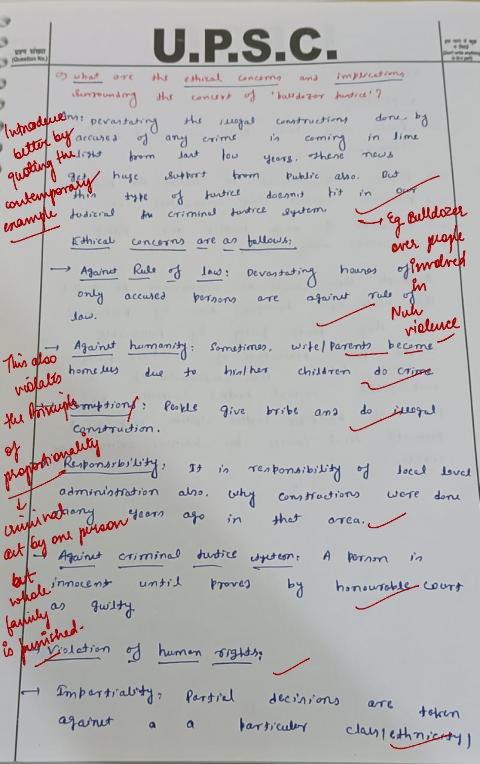 प्रश्न संख्या
(Question No.)
U.P.S.C.
c) what are the ethical concerns and implications
surrounding the concept of 'bulldozor Justice'?
Ans: Devastating the illegal constructions done by
accused of any crime is coming in lime
light from last few years. These news
get huge support from Public also. But
this type of Justice doesn't fit in our
Judicial criminal Justice system.
Introduce
better by
quoting the
contemporary
example
Ethical concerns are as follows:
→ Eg Bulldozer
over people
involved
in
Nuh
violence
→ Against Rule of law: Devastating houses of
only accused persons are against rule of
law.
→ Against humanity: Sometimes, wife/Parents become
homeless due to his/her children do crime
→ Corruptions: People give bribe and do illegal
construction.
This also
violates
the Principle
of
proportionality
↓
criminal
act by one person
but
whole
family
is punished.
Responsibility: It is responsibility of local level
administration also. why constructions were done
many years ago in that area.
→ Against criminal Justice system: A person is
innocent until proves by honourable court
as guilty
Violation of human rights:
→ Impartiality: Partial decisions are taken
against a a particular class/ethnicity/